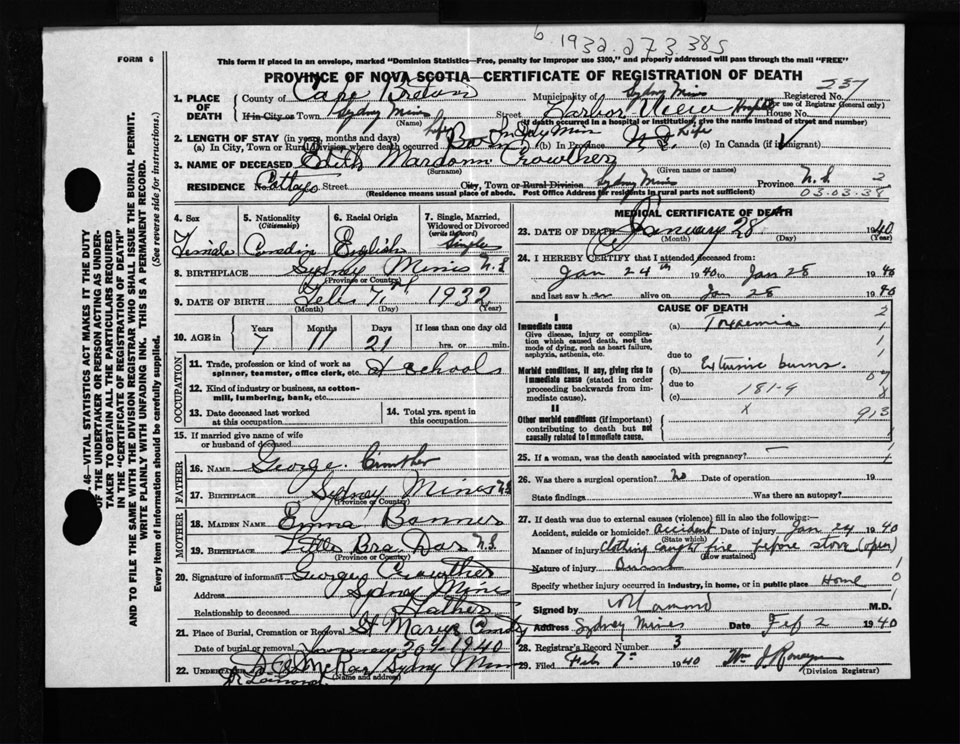 b. 1932. 273.385
FORM 6
This form if placed in an envelope, marked "Dominion Statistics—Free, penalty for improper use $300," and properly addressed will pass through the mail "FREE"
PROVINCE OF NOVA SCOTIA—CERTIFICATE OF REGISTRATION OF DEATH
1. PLACE OF DEATH County of Cape Breton Municipality of Sydney Mines Registered No. 337
(For use of Registrar General only)
If in City or Town Sydney Mines (Name) Street Harbor View Hospital House No.
(If death occurred in a hospital or institution, give the name instead of street and number)
2. LENGTH OF STAY (in years, months and days)
(a) In City, Town or Rural Division where death occurred life Born in Sdy Min (b) In Province N.S. Life (c) In Canada (if immigrant)
3. NAME OF DECEASED Edith Crowther
(Surname) (Given name or names)
RESIDENCE No. Cottage Street City, Town or Rural Division Sydney Mines Province N.S 2
(Residence means usual place of abode. Post Office Address for residents in rural parts not sufficient) 03-03-38
4. Sex Female
5. Nationality (Citizenship)
6. Racial Origin English
7. Single, Married, Widowed or Divorced (write the word) Single
8. BIRTHPLACE Sydney Mines N.S.
(Province or Country)
9. DATE OF BIRTH Feb 7th 1932
(Month) (Day) (Year)
10. AGE in Years 7 Months 11 Days 21 If less than one day old hrs. or min.
OCCUPATION
11. Trade, profession or kind of work as spinner, teamster, office clerk, etc. At School
12. Kind of industry or business, as cotton-mill, lumbering, bank, etc.
13. Date deceased last worked at this occupation
14. Total yrs. spent in this occupation
15. If married give name of wife or husband of deceased
FATHER
16. NAME George Crowther
17. BIRTHPLACE Sydney Mines N.S
(Province or Country)
MOTHER
18. MAIDEN NAME Emma
19. BIRTHPLACE Little Bras Dor N.S.
(Province or Country)
20. Signature of informant George Crowther
Address Sydney Mines
Relationship to deceased Father
21. Place of Burial, Cremation or Removal St Marys
Date of burial or removal January 30th 1940
22. UNDERTAKER McKay Sydney Mines
(Name and address)
MEDICAL CERTIFICATE OF DEATH
23. DATE OF DEATH January 28 1940
(Month) (Day) (Year)
24. I HEREBY CERTIFY that I attended deceased from:
Jan 24th 1940 to Jan 28 1940
and last saw her alive on Jan 28 1940
CAUSE OF DEATH
I
Immediate cause
Give disease, injury or complication which caused death, not the mode of dying, such as heart failure, asphyxia, asthenia, etc.
(a) Toxaemia
due to
Morbid conditions, if any, giving rise to immediate cause (stated in order proceeding backwards from immediate cause).
(b) Extensive burns.
due to
(c) 181-9
II
Other morbid conditions (if important) contributing to death but not causally related to immediate cause.
x
913
25. If a woman, was the death associated with pregnancy? —
26. Was there a surgical operation? No Date of operation 19
State findings Was there an autopsy?
27. If death was due to external causes (violence) fill in also the following:
Accident, suicide or homicide? Accident Date of injury Jan 24 1940
(State which)
Manner of injury Clothing caught fire before stove (open)
(How sustained)
Nature of injury Burns
Specify whether injury occurred in industry, in home, or in public place Home
Signed by M.D.
Address Sydney Mines Date Feb 2 1940
28. Registrar's Record Number 3
29. Filed Feb 7th 1940
(Division Registrar)
46—VITAL STATISTICS ACT MAKES IT THE DUTY OF THE UNDERTAKER OR PERSON ACTING AS UNDERTAKER TO OBTAIN ALL THE PARTICULARS REQUIRED IN THE "CERTIFICATE OF REGISTRATION OF DEATH"
AND TO FILE THE SAME WITH THE DIVISION REGISTRAR WHO SHALL ISSUE THE BURIAL PERMIT.
WRITE PLAINLY WITH UNFADING INK. THIS IS A PERMANENT RECORD.
Every item of information should be carefully supplied. (See reverse side for instructions.)